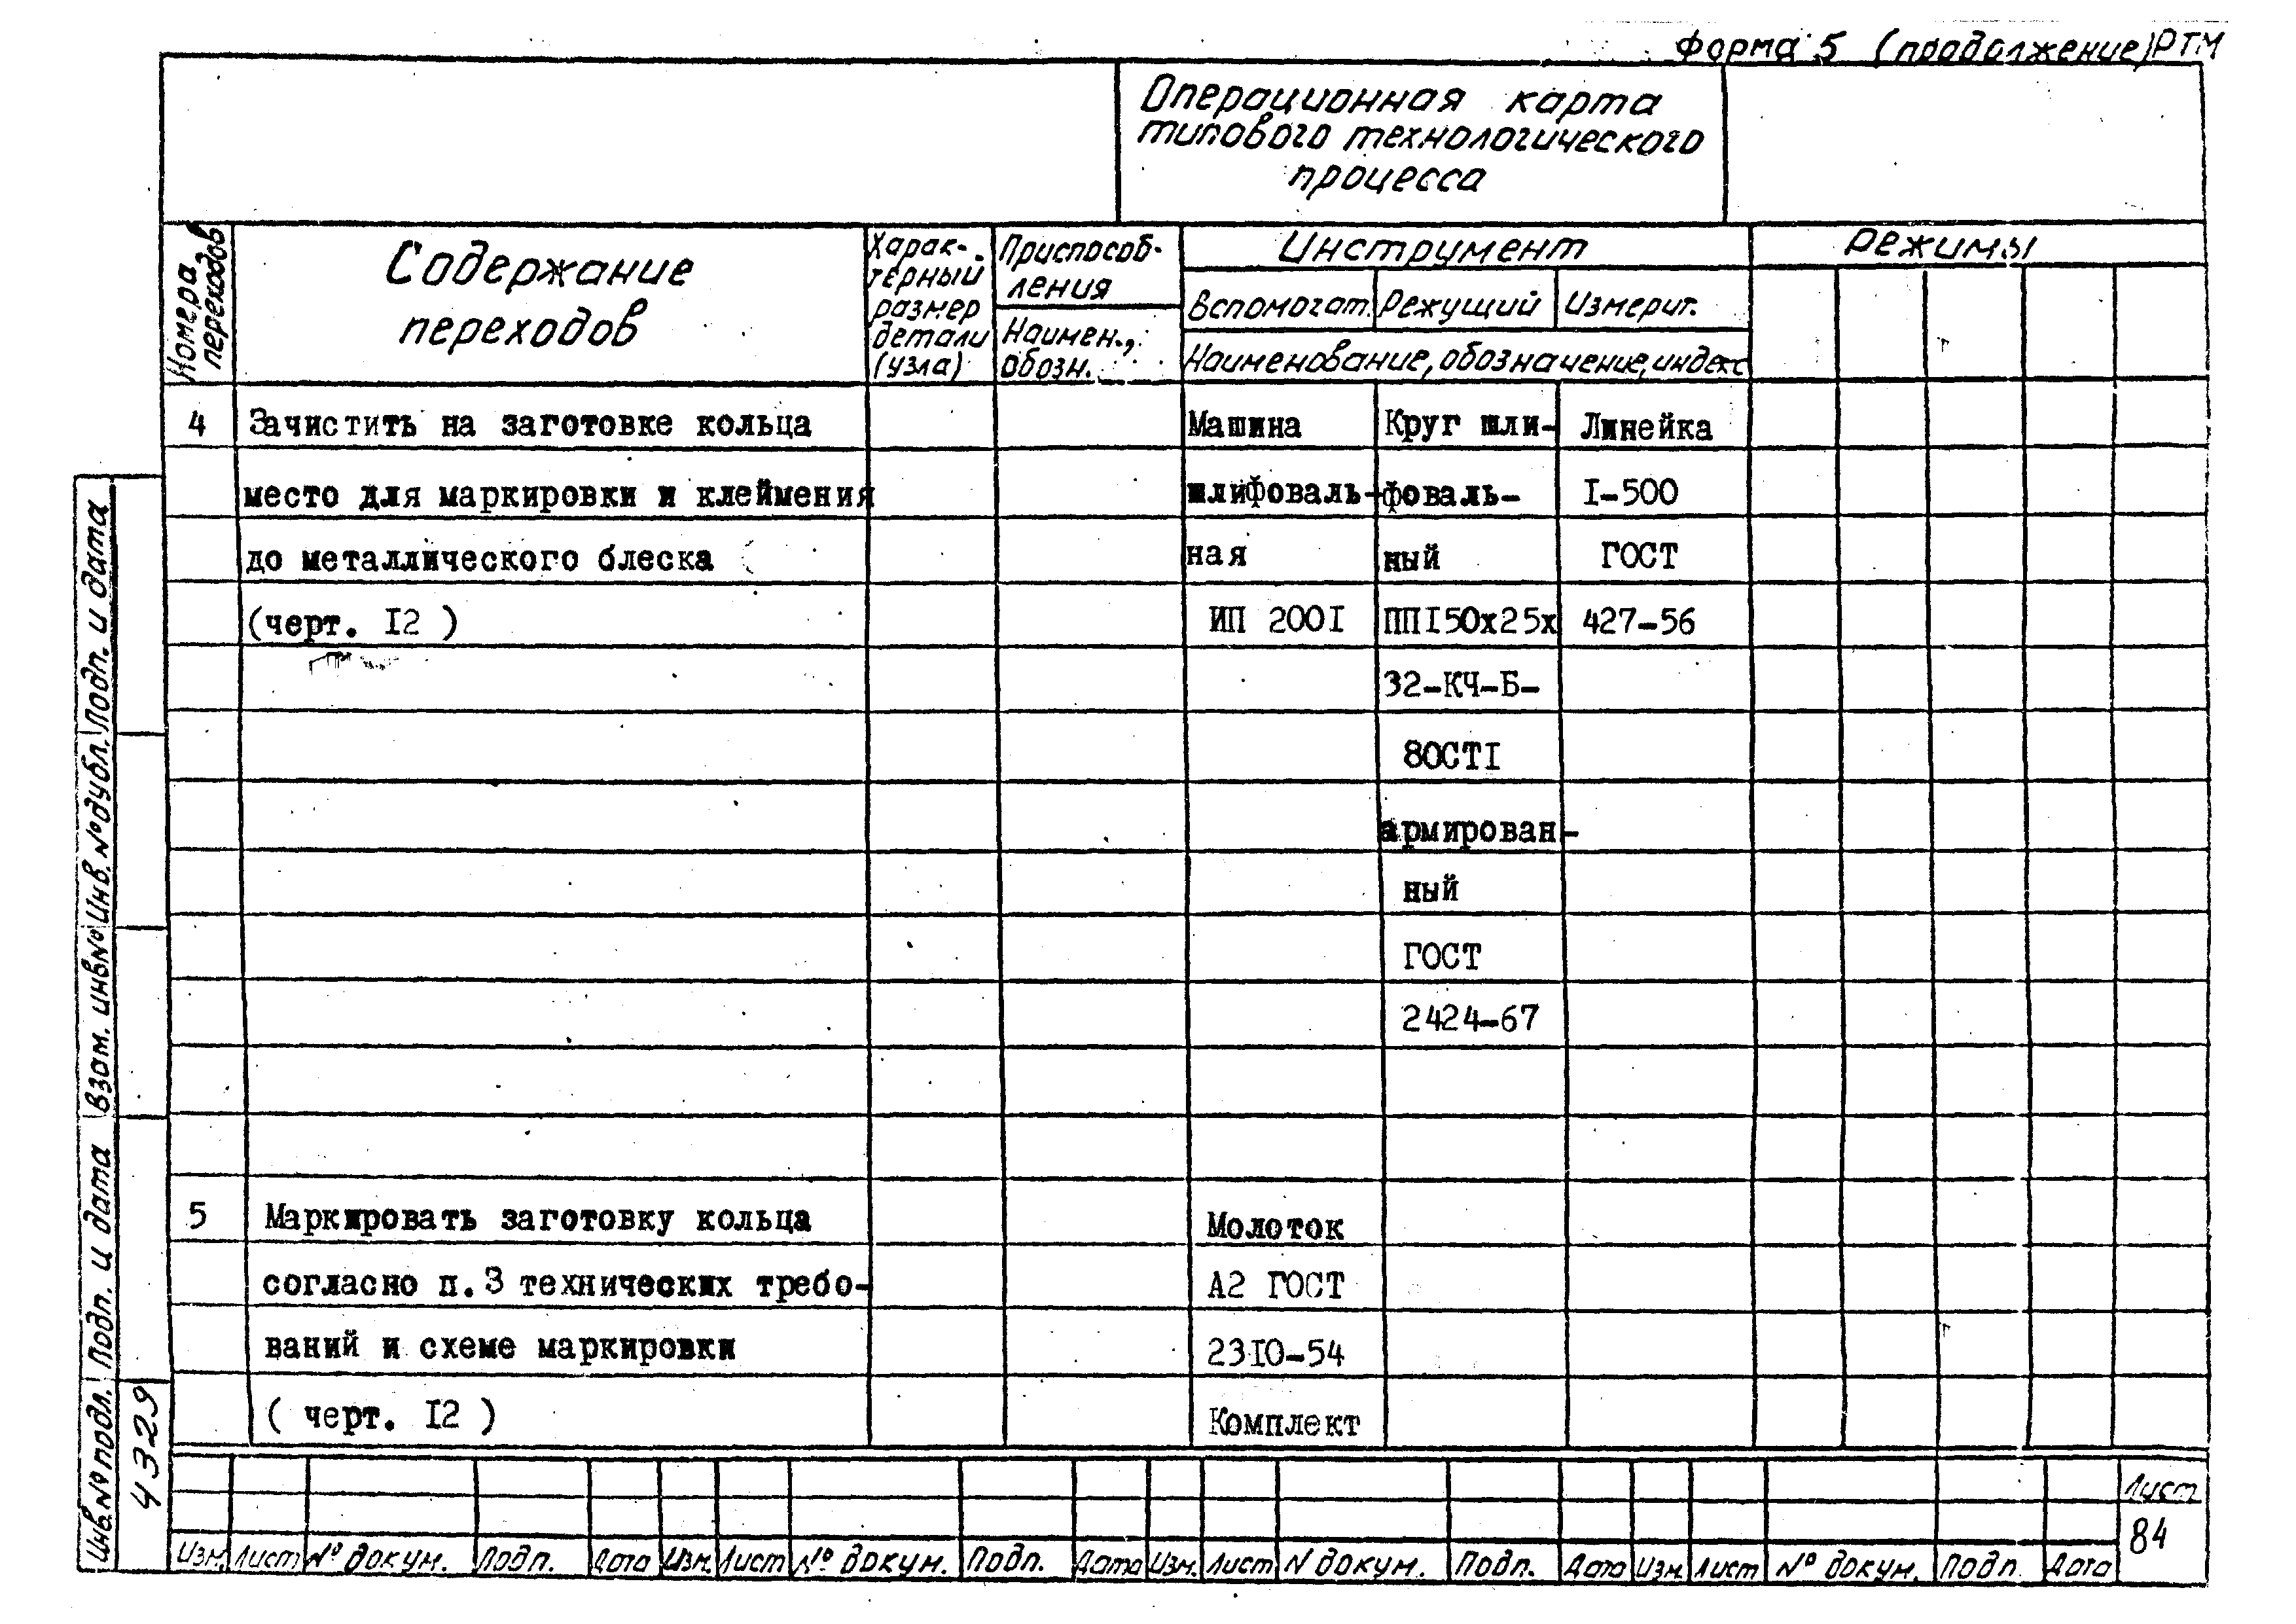 Форма 5 (продолжение) РТМ
Операционная карта
типового технологического
процесса
Номера
переходов
Содержание
переходов
Харак-
терный
размер
детали
(узла)
Приспособ-
ления
Наимен.,
обозн.
Инструмент
Вспомогат. Режущий Измерит.
Наименование, обозначение, индекс
Режимы
4 Зачистить на заготовке кольца Машина Круг шли- Линейка
место для маркировки и клеймения шлифоваль- фоваль- I-500
до металлического блеска ная ный ГОСТ
(черт. I2 ) ИП 200I ППI50х25х 427-56
32-КЧ-Б-
80СТI
армирован-
ный
ГОСТ
2424-67
5 Маркировать заготовку кольца Молоток
согласно п.3 технических требо- А2 ГОСТ
ваний и схеме маркировки 23I0-54
( черт. I2 ) Комплект
Лист
84
Изм. Лист № докум. Подп. Дата Изм. Лист № докум. Подп. Дата Изм. Лист N докум. Подп. Дата Изм. Лист № докум. Подп. Дата
Инв. № подл. Подп. и дата Взам. инв № Инв. № дубл. Подп. и дата
4329